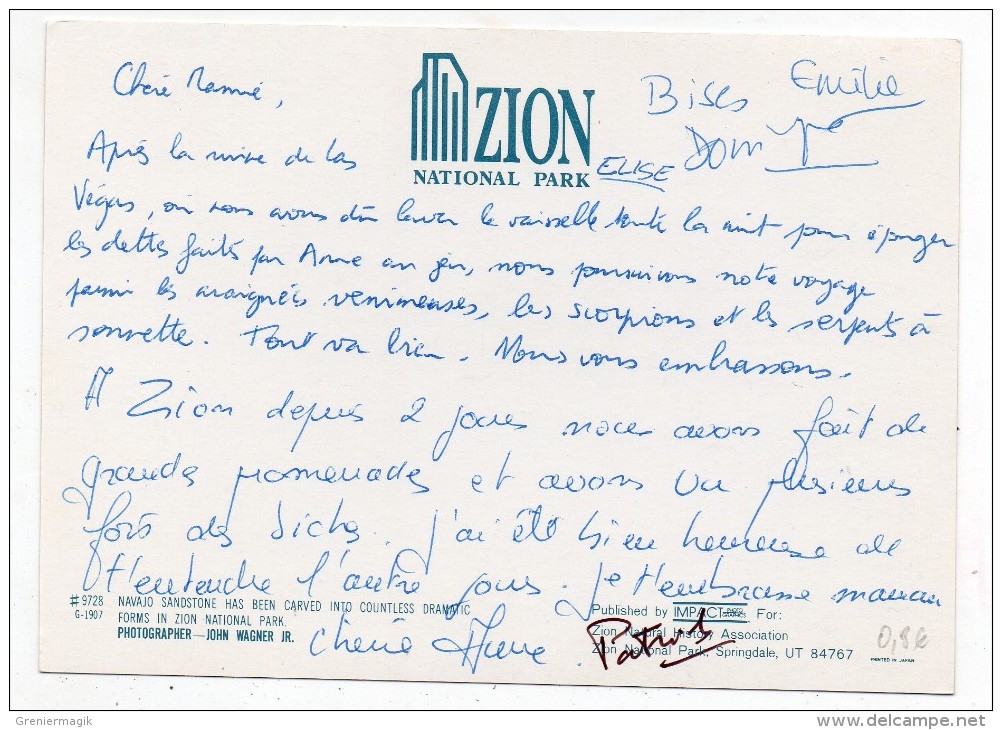 Chère Mamie,
ZION
NATIONAL PARK
Bises Emilie
ELISE
Après la ruine de Las
Végas, où nous avons dû laver la vaisselle toute la nuit pour éponger
les dettes faites par Anne au jeu, nous poursuivons notre voyage
parmi les araignées venimeuses, les scorpions et les serpents à
sonnette. Tout va bien. Nous vous embrassons.
A Zion depuis 2 jours nous avons fait de
grandes promenades et avons vu plusieurs
fois des biches. J'ai été bien heureuse de
t'entendre l'autre jour. Je t'embrasse maman
chérie Anne.
Patrick
#9728
G-1907
NAVAJO SANDSTONE HAS BEEN CARVED INTO COUNTLESS DRAMATIC
FORMS IN ZION NATIONAL PARK.
PHOTOGRAPHER—JOHN WAGNER JR.
Published by IMPACT For:
Zion Natural History Association
Zion National Park, Springdale, UT 84767
PRINTED IN JAPAN
0,8€
Greniermagik
delcampe.net